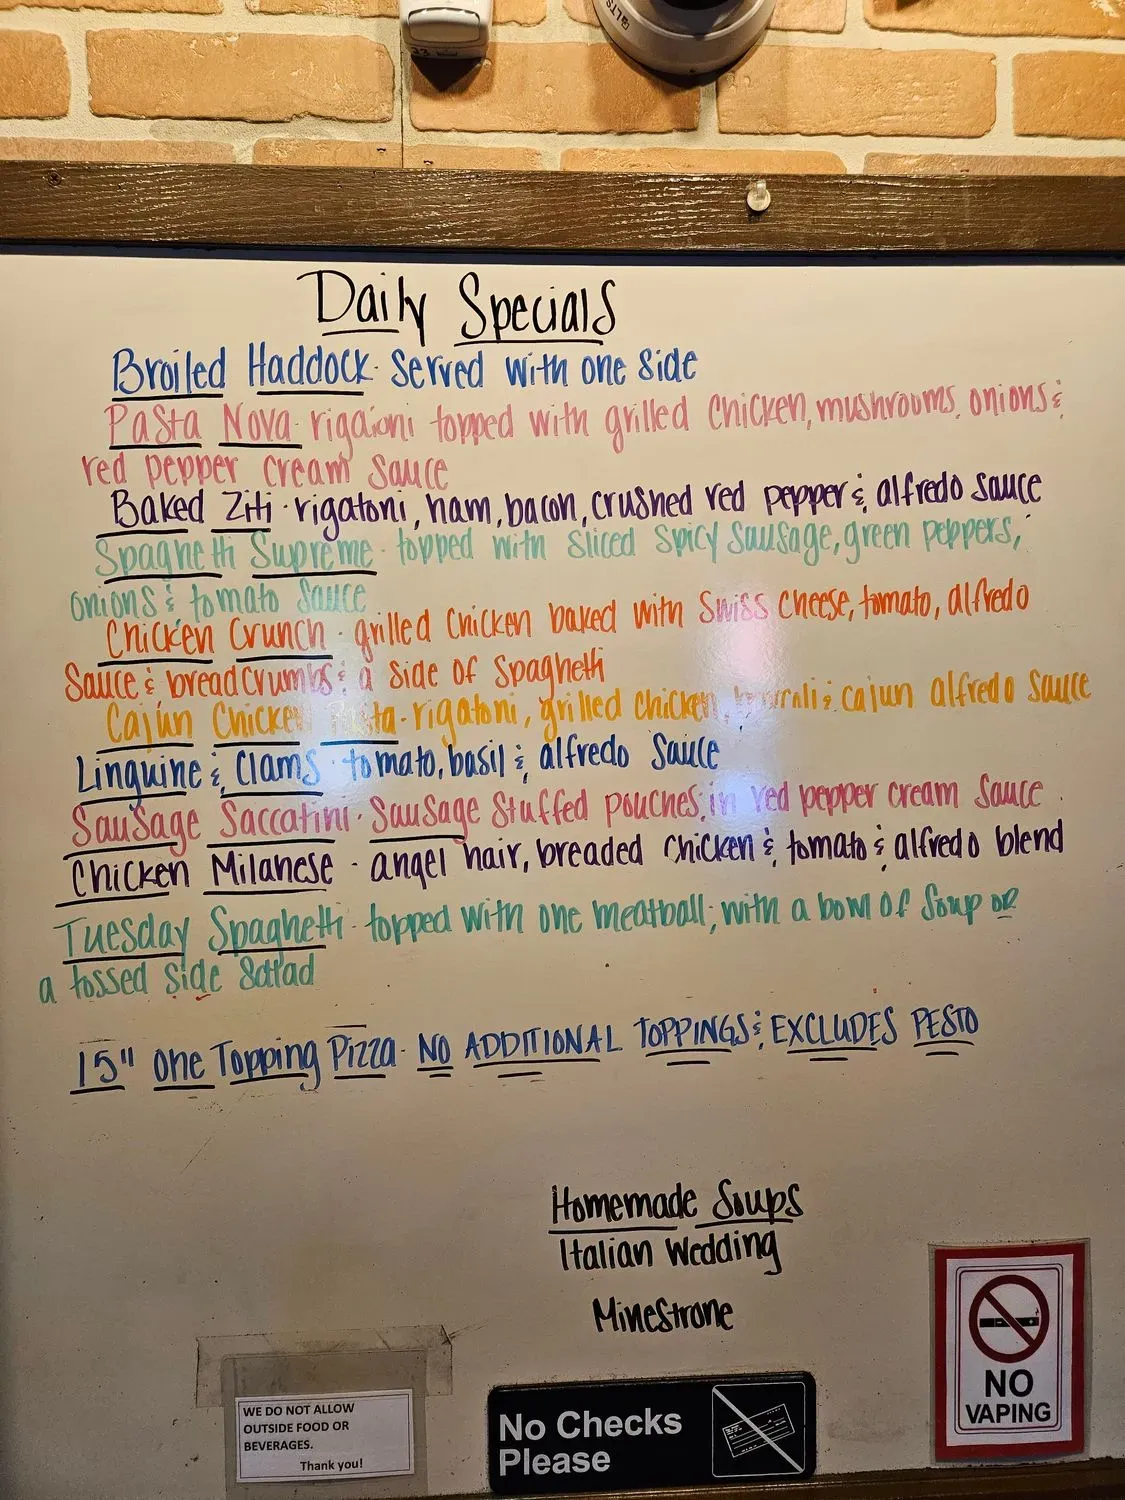 QLTS
33
Daily Specials
Broiled Haddock· served with one side
Pasta Nova· rigaioni topped with grilled chicken, mushrooms, onions &
red pepper cream sauce
Baked Ziti · rigatoni, ham, bacon, crushed red pepper & alfredo sauce
Spaghetti Supreme· topped with sliced spicy sausage, green peppers,
onions & tomato sauce
Chicken Crunch · grilled chicken baked with swiss cheese, tomato, alfredo
sauce & breadcrumbs & a side of spaghetti
Cajun Chicken Pasta· rigatoni, grilled chicken, broccoli & cajun alfredo sauce
Linguine & Clams · tomato, basil & alfredo sauce
Sausage Saccatini · Sausage stuffed pouches, in red pepper cream sauce
Chicken Milanese - angel hair, breaded chicken & tomato & alfredo blend
Tuesday Spaghetti· topped with one meatball; with a bowl of soup or
a tossed side salad
15" One Topping Pizza· NO ADDITIONAL TOPPINGS & EXCLUDES PESTO
Homemade Soups
Italian Wedding
Minestrone
WE DO NOT ALLOW
OUTSIDE FOOD OR
BEVERAGES.
Thank you!
No Checks
Please
NO
VAPING